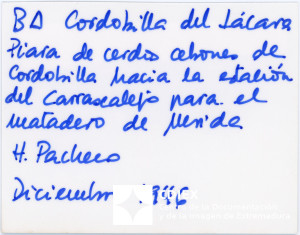 BA Cordobilla del Lácara
Piara de cerdos cebones de
Cordobilla hacia la estación
del Carrascalejo para el
matadero de Merida
H. Pacheco
Diciembre 1946